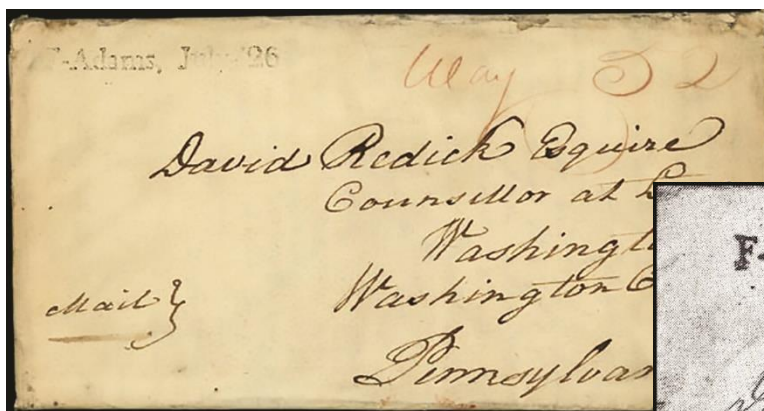 F-Adams, July 26
Way 52
David Redick Esquire
Counsellor at L
Washingto
Mail
Washington C
Pennsylvan
F-